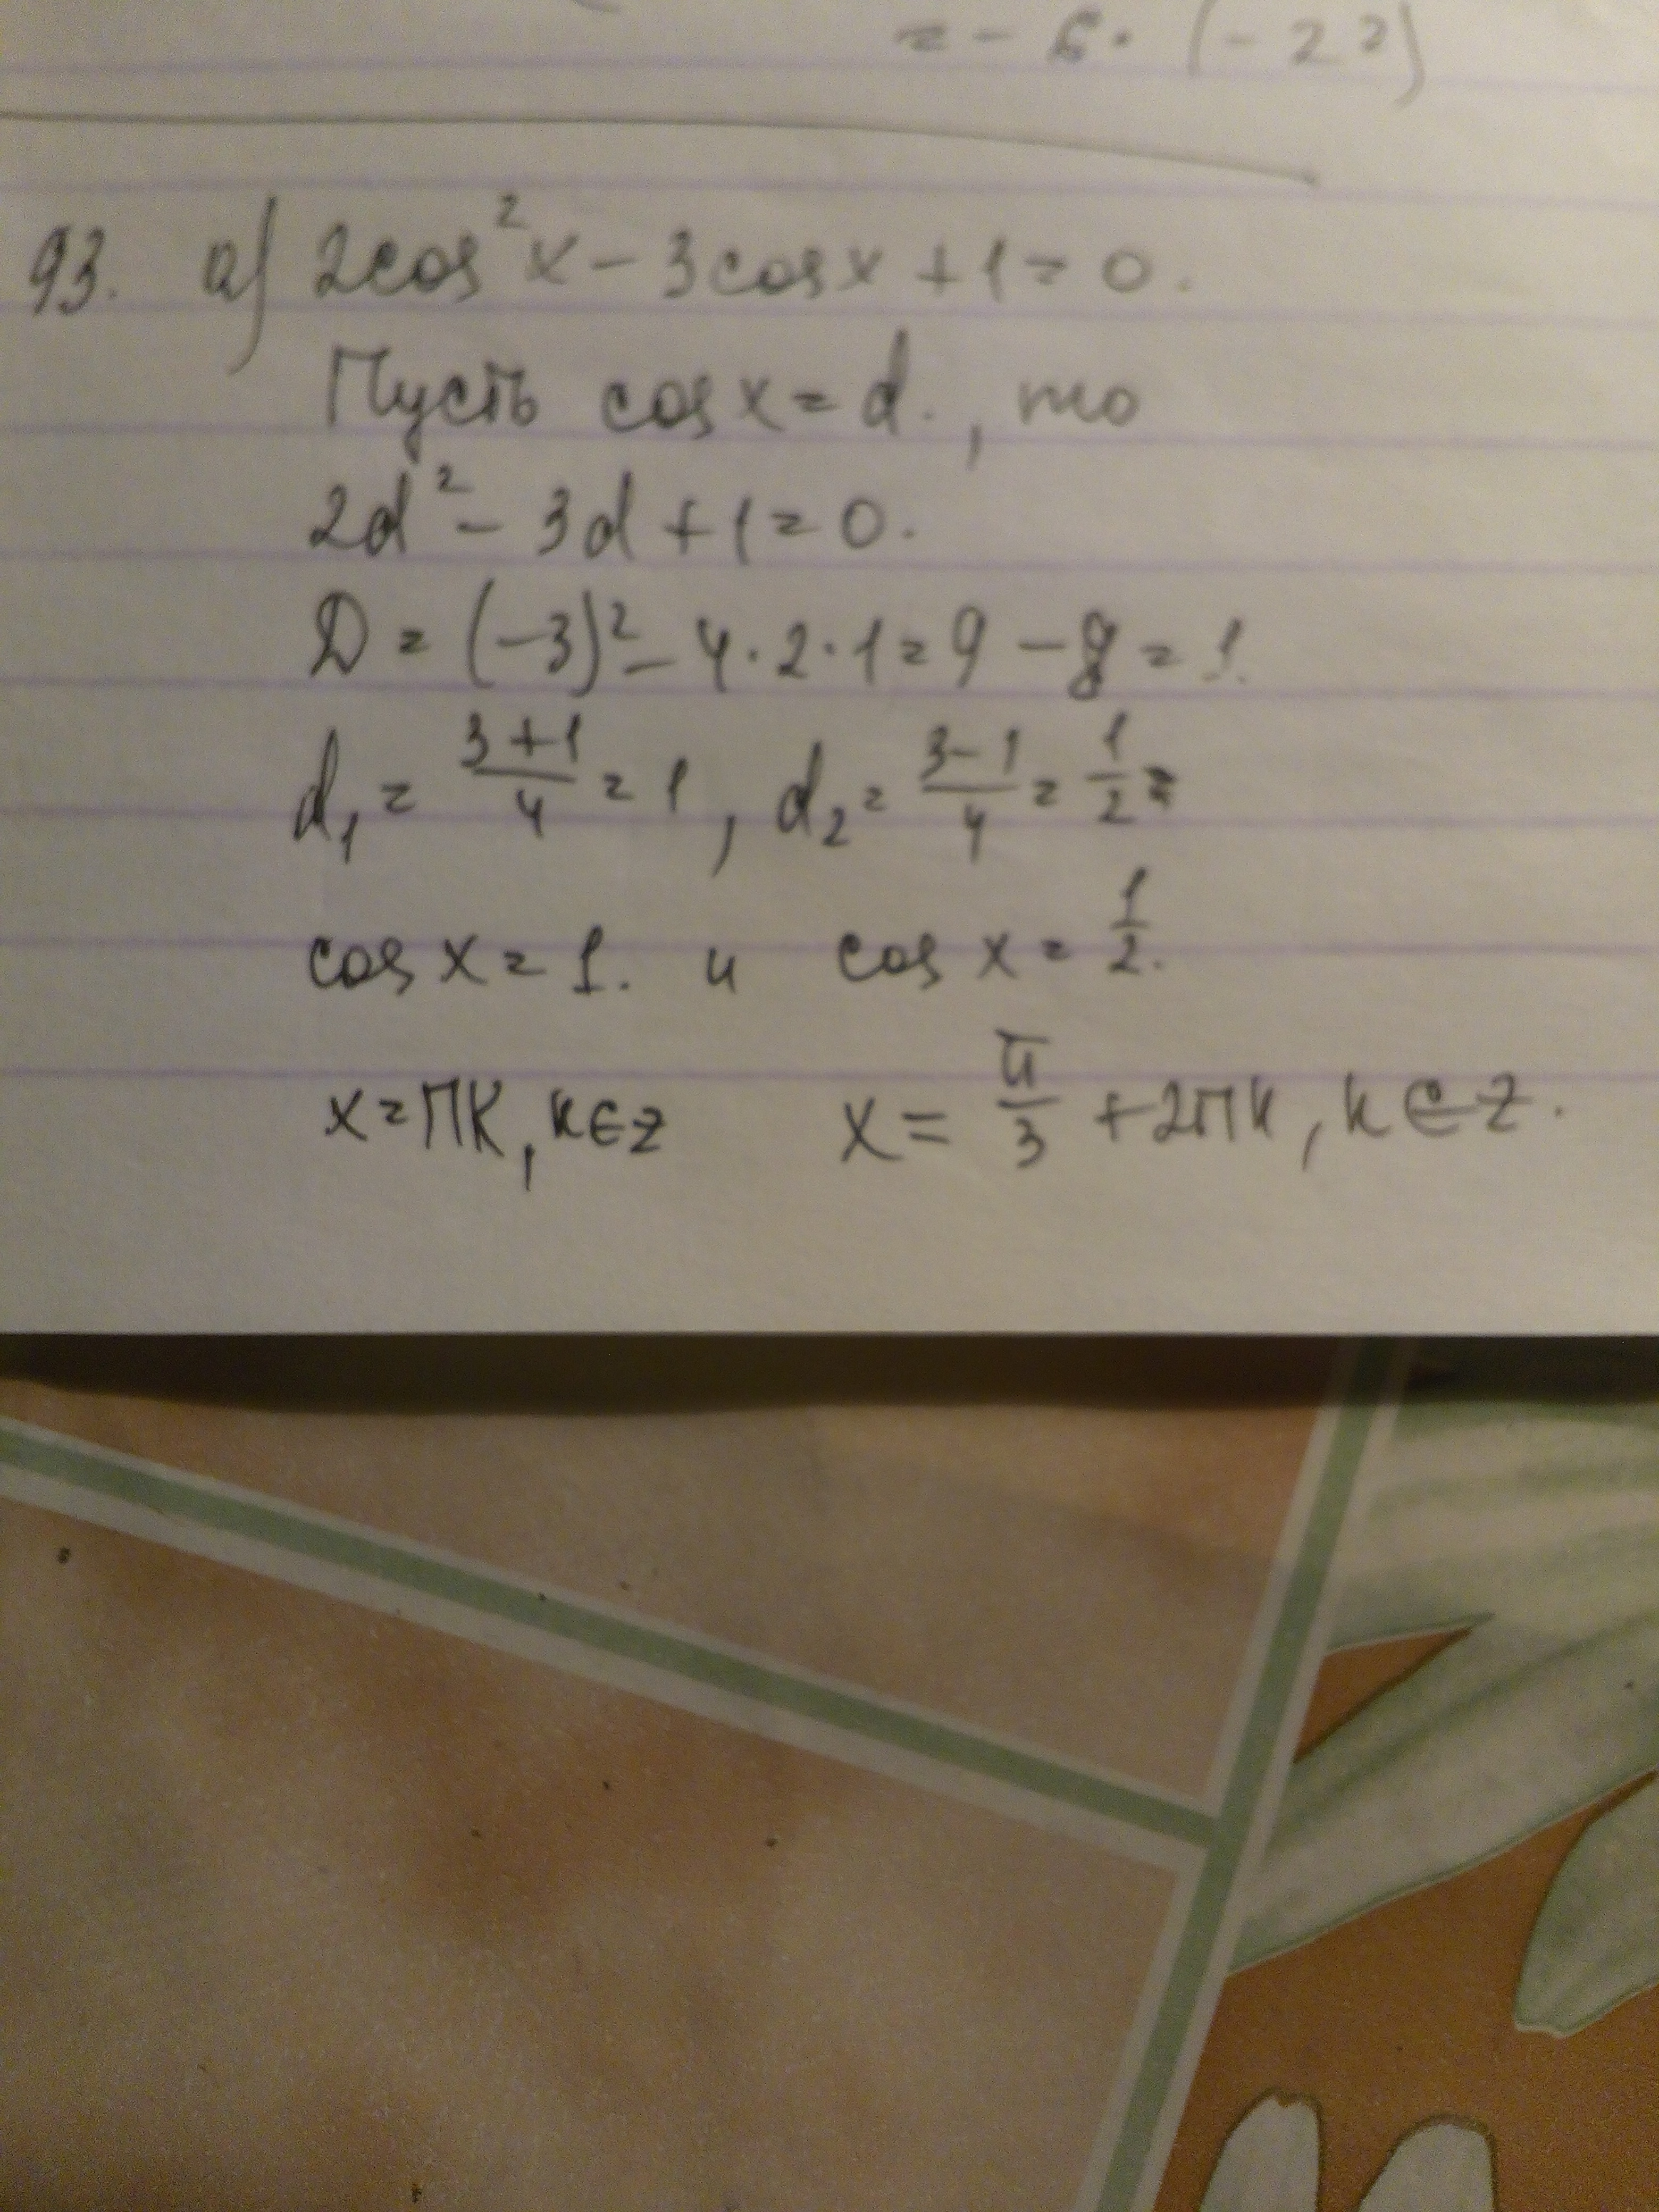 = - 6 · (-22)
93. а) 2cos²x - 3cosx + 1 = 0.
Пусть cosx = d., то
2d² - 3d + 1 = 0.
D = (-3)² - 4 · 2 · 1 = 9 - 8 = 1.
d₁ = (3+1)/4 = 1, d₂ = (3-1)/4 = 1/2 =
cos x = 1. и cos x = 1/2.
x = πk, k∈z x = π/3 + 2πk, k∈z.